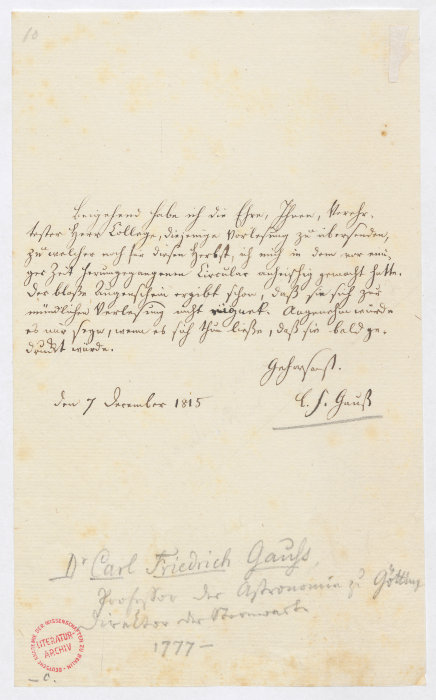 10
Beigehend habe ich die Ehre, Ihnen, Verehr-
tester Herr College, diejenige Vorlesung zu übersenden,
zu welcher noch für diesen Herbst, ich mich in dem vor eini-
ger Zeit herumgegangenen Circular anheischig gemacht hatte.
Der bloße Augenschein ergibt schon, daß sie sich zur
mündlichen Vorlesung nicht eignet. Angenehm würde
es mir seyn, wenn es sich thun ließe, daß sie bald ge-
druckt würde.
Gehorsamst.
den 7 December 1815
C. F. Gauß
Dr Carl Friedrich Gauss,
Professor der Astronomie zu Götting
Direktor der Sternwarte
1777 –
DEUTSCHE AKADEMIE DER WISSENSCHAFTEN ZU BERLIN
LITERATUR-
ARCHIV